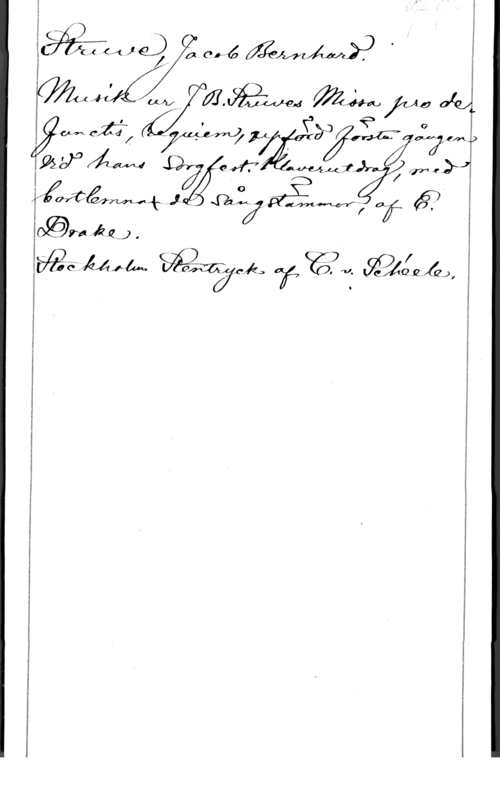 Struve, Jacob Bernhard.
Musik ur J. B. Struves Missa pro de-
functis, (Requiem), uppförd första gången
vid hans Sorgfest. Klaverutdrag, med
bortlemnad de Sångstämmor, af E.
Drake.
Stockholm Stentryck af C. v. Schéele.